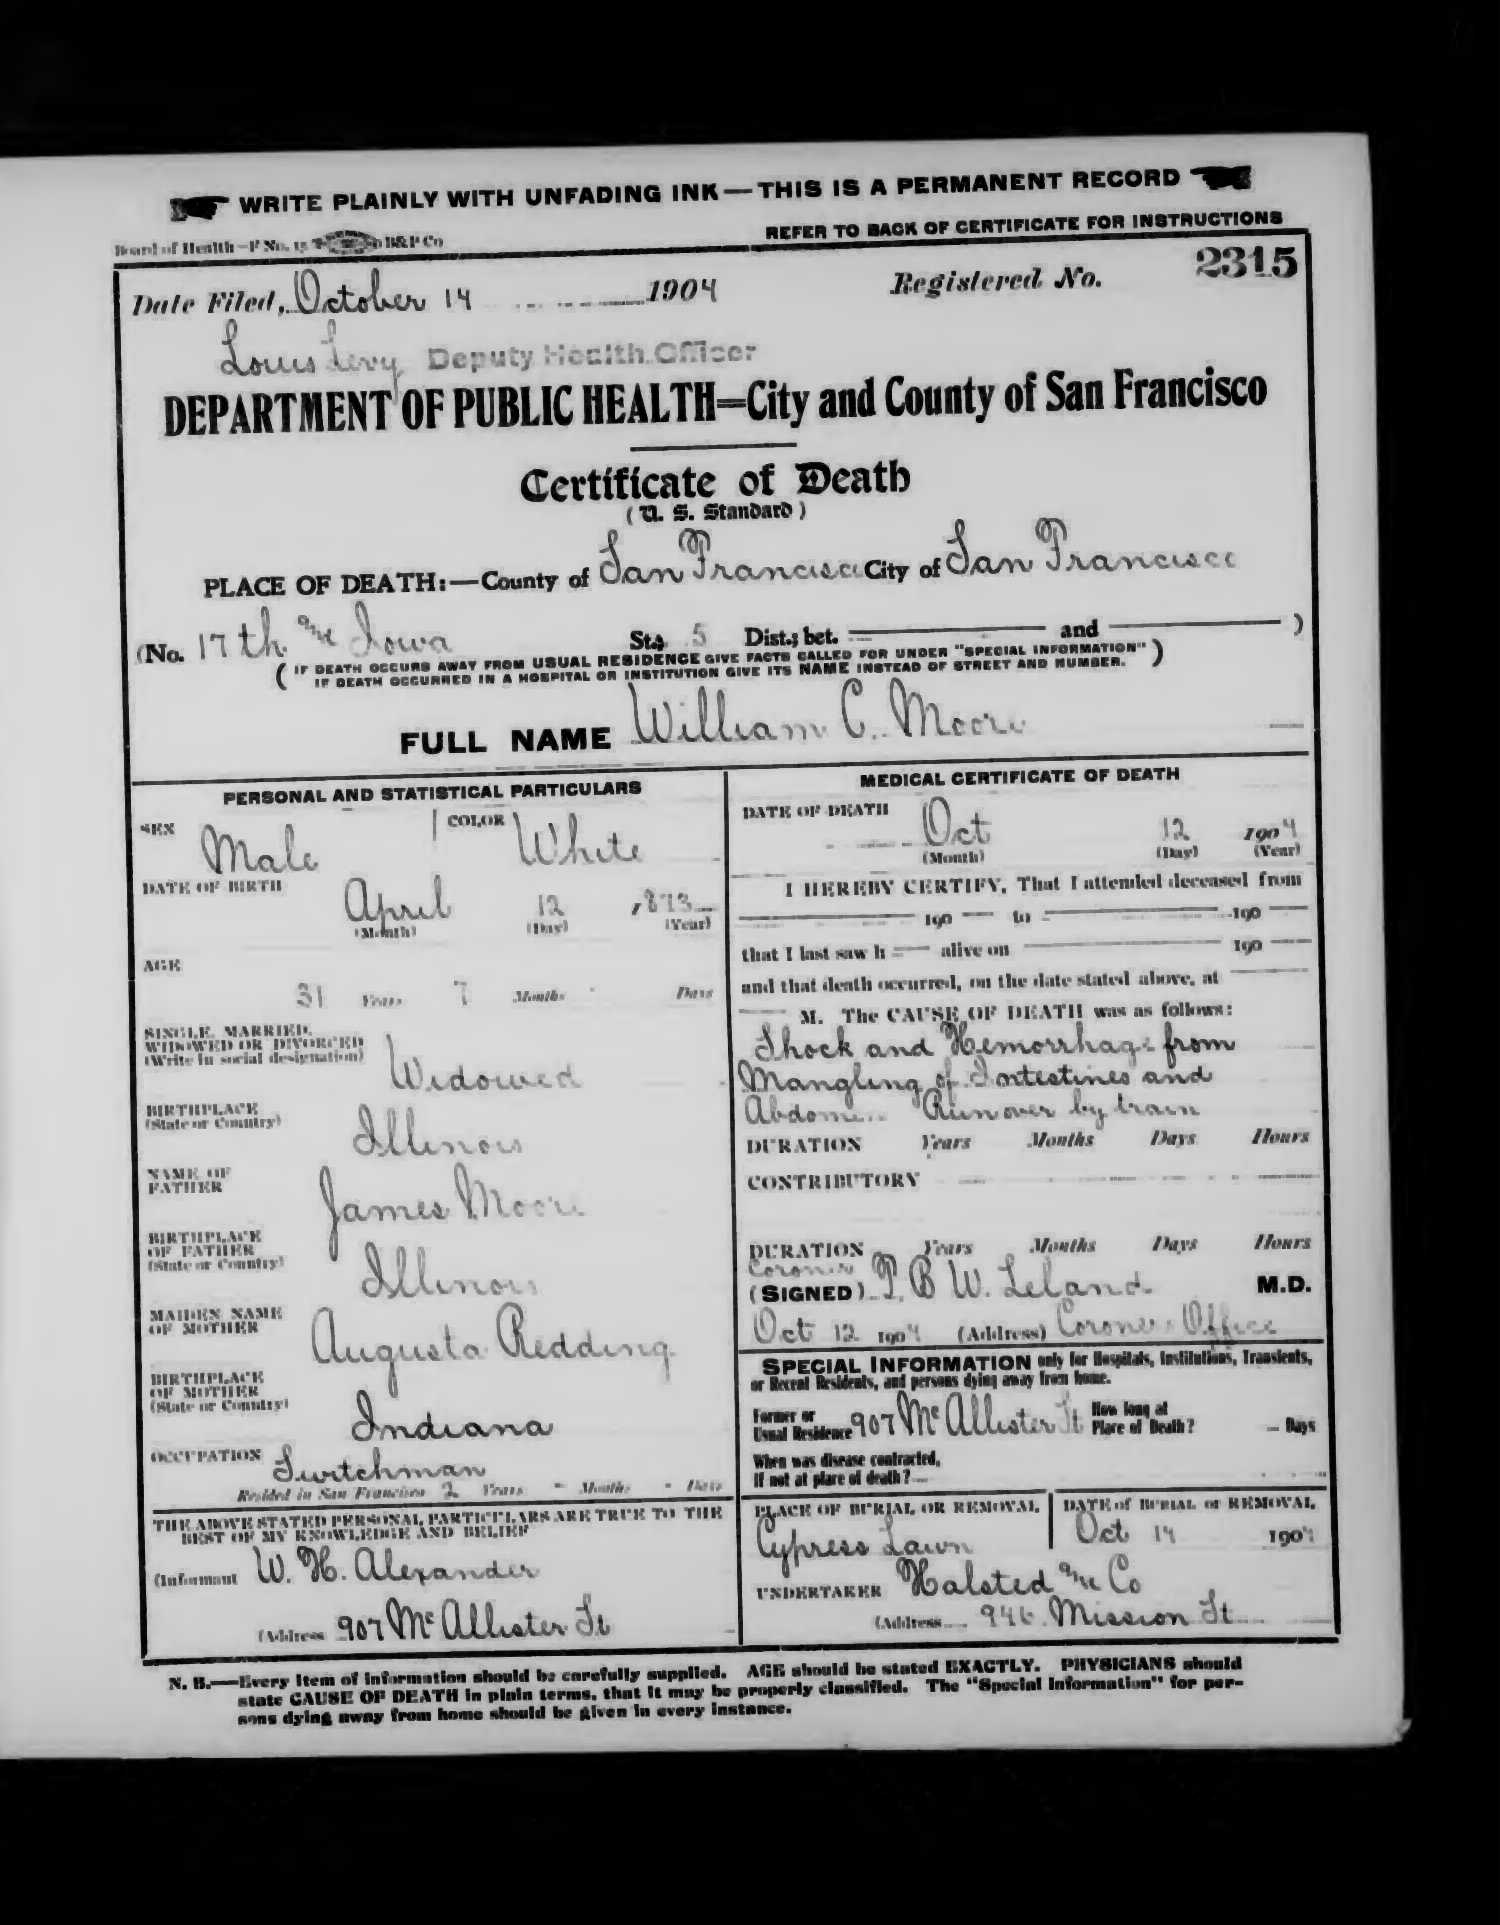 WRITE PLAINLY WITH UNFADING INK—THIS IS A PERMANENT RECORD
Board of Health—F No. 15 B&P Co
REFER TO BACK OF CERTIFICATE FOR INSTRUCTIONS
Date Filed, October 14 1904 Registered No. 2315
Louis Levy Deputy Health Officer
DEPARTMENT OF PUBLIC HEALTH=City and County of San Francisco
Certificate of Death
(U. S. Standard)
PLACE OF DEATH:—County of San Francisco City of San Francisco
(No. 17th and Iowa St.; 5 Dist.; bet. and )
( IF DEATH OCCURS AWAY FROM USUAL RESIDENCE GIVE FACTS CALLED FOR UNDER "SPECIAL INFORMATION" )
IF DEATH OCCURRED IN A HOSPITAL OR INSTITUTION GIVE ITS NAME INSTEAD OF STREET AND NUMBER.
FULL NAME William C. Moore
PERSONAL AND STATISTICAL PARTICULARS
SEX Male COLOR White
DATE OF BIRTH
April 12 1873
(Month) (Day) (Year)
AGE
31 Years 7 Months Days
SINGLE, MARRIED,
WIDOWED OR DIVORCED
(Write in social designation)
Widowed
BIRTHPLACE
(State or Country)
Illinois
NAME OF
FATHER
James Moore
BIRTHPLACE
OF FATHER
(State or Country)
Illinois
MAIDEN NAME
OF MOTHER
Augusta Redding
BIRTHPLACE
OF MOTHER
(State or Country)
Indiana
OCCUPATION Switchman
Resided in San Francisco 2 Years - Months - Days
THE ABOVE STATED PERSONAL PARTICULARS ARE TRUE TO THE
BEST OF MY KNOWLEDGE AND BELIEF
(Informant W. H. Alexander
(Address 907 McAllister St
MEDICAL CERTIFICATE OF DEATH
DATE OF DEATH
Oct 12 1904
(Month) (Day) (Year)
I HEREBY CERTIFY, That I attended deceased from
190 to 190
that I last saw h alive on 190
and that death occurred, on the date stated above, at
M. The CAUSE OF DEATH was as follows:
Shock and Hemorrhage from
Mangling of Intestines and
Abdomen. Run over by train
DURATION Years Months Days Hours
CONTRIBUTORY
DURATION Years Months Days Hours
Coroner
(SIGNED) T. B W. Leland. M.D.
Oct 12 1904 (Address) Coroners Office
SPECIAL INFORMATION only for Hospitals, Institutions, Transients,
or Recent Residents, and persons dying away from home.
Former or
Usual Residence 907 McAllister St
How long at
Place of Death? – Days
When was disease contracted,
If not at place of death?
PLACE OF BURIAL OR REMOVAL
Cypress Lawn
DATE of BURIAL or REMOVAL
Oct 14 1904
UNDERTAKER Halsted and Co
(Address 946 Mission St
N. B.—Every item of information should be carefully supplied. AGE should be stated EXACTLY. PHYSICIANS should
state CAUSE OF DEATH in plain terms, that it may be properly classified. The "Special Information" for per-
sons dying away from home should be given in every instance.